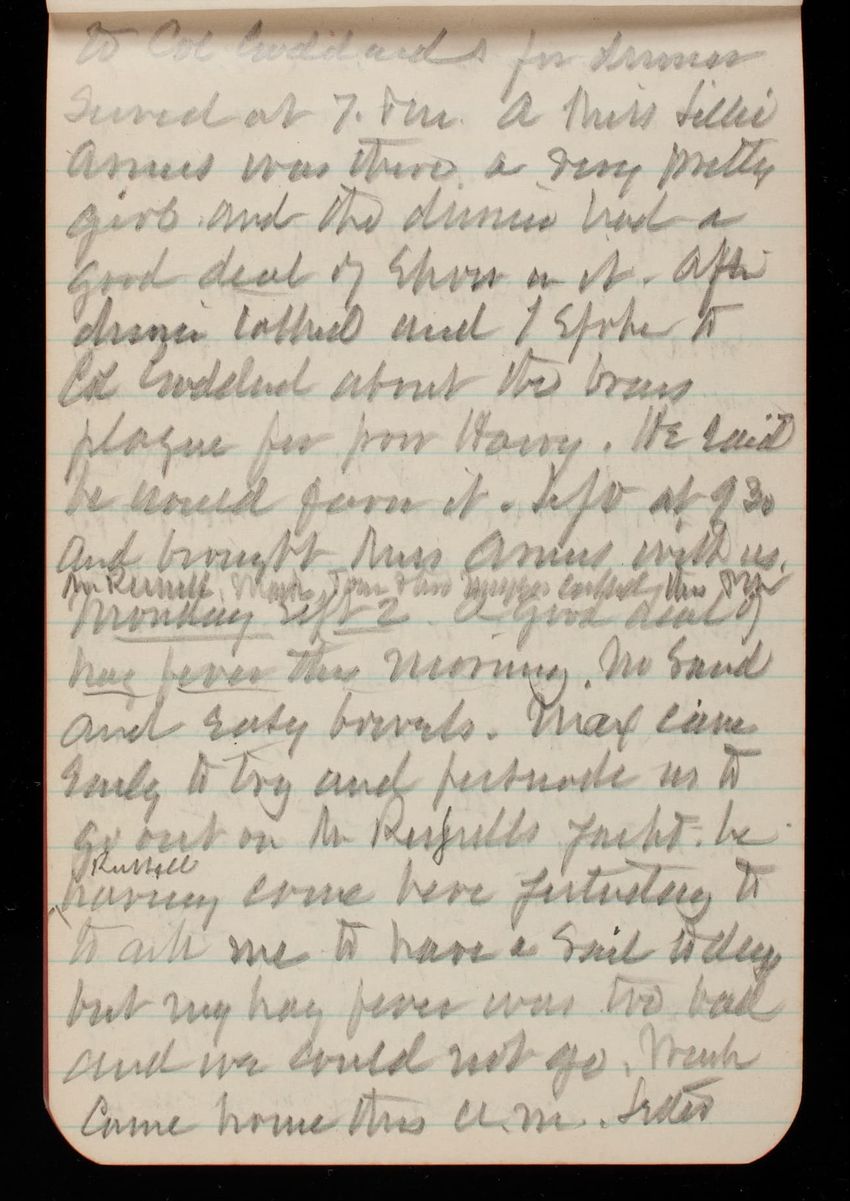 to Col Goddards for dinner
served at 7. P.M. A Miss Lillie
Annis was there, a very pretty
girl and the dinner had a
good deal of Show in it. After
dinner talked and I spoke to
Col Goddard about the brass
plaque for poor Harry. He said
he would form it. Left at 9 30
and brought Miss Annis with us.
Mr Russell, Max, Tom called this PM
Monday Sept 2. A good deal of
hay fever this morning. No Sand
and easy bowels. Max came
early to try and persuade us to
go out on Mr Russells yacht. he
Russell
having come here yesterday to
to ask me to have a Sail today
but my hay fever was too bad
and we could not go.
Came home this a.m. Letter